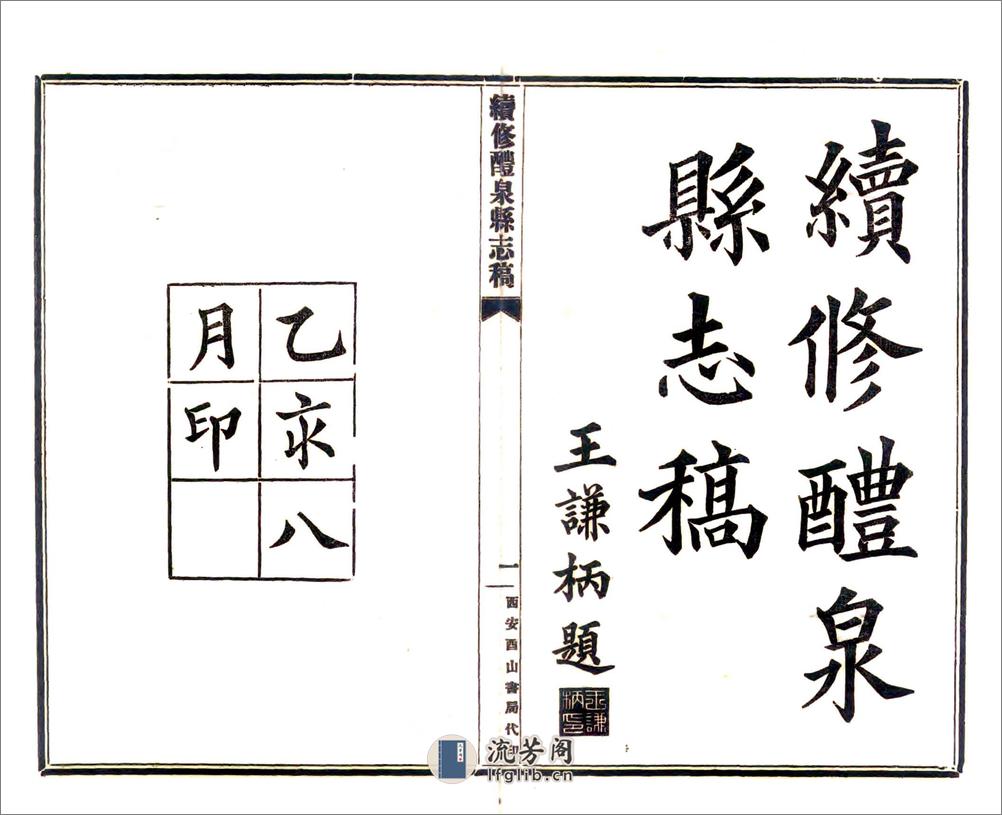 續修醴泉
縣志稿
王謙柄題
王謙柄印
續修醴泉縣志稿
一
西安酉山書局代印
乙亥八
月印
流芳阁
lfglib.cn